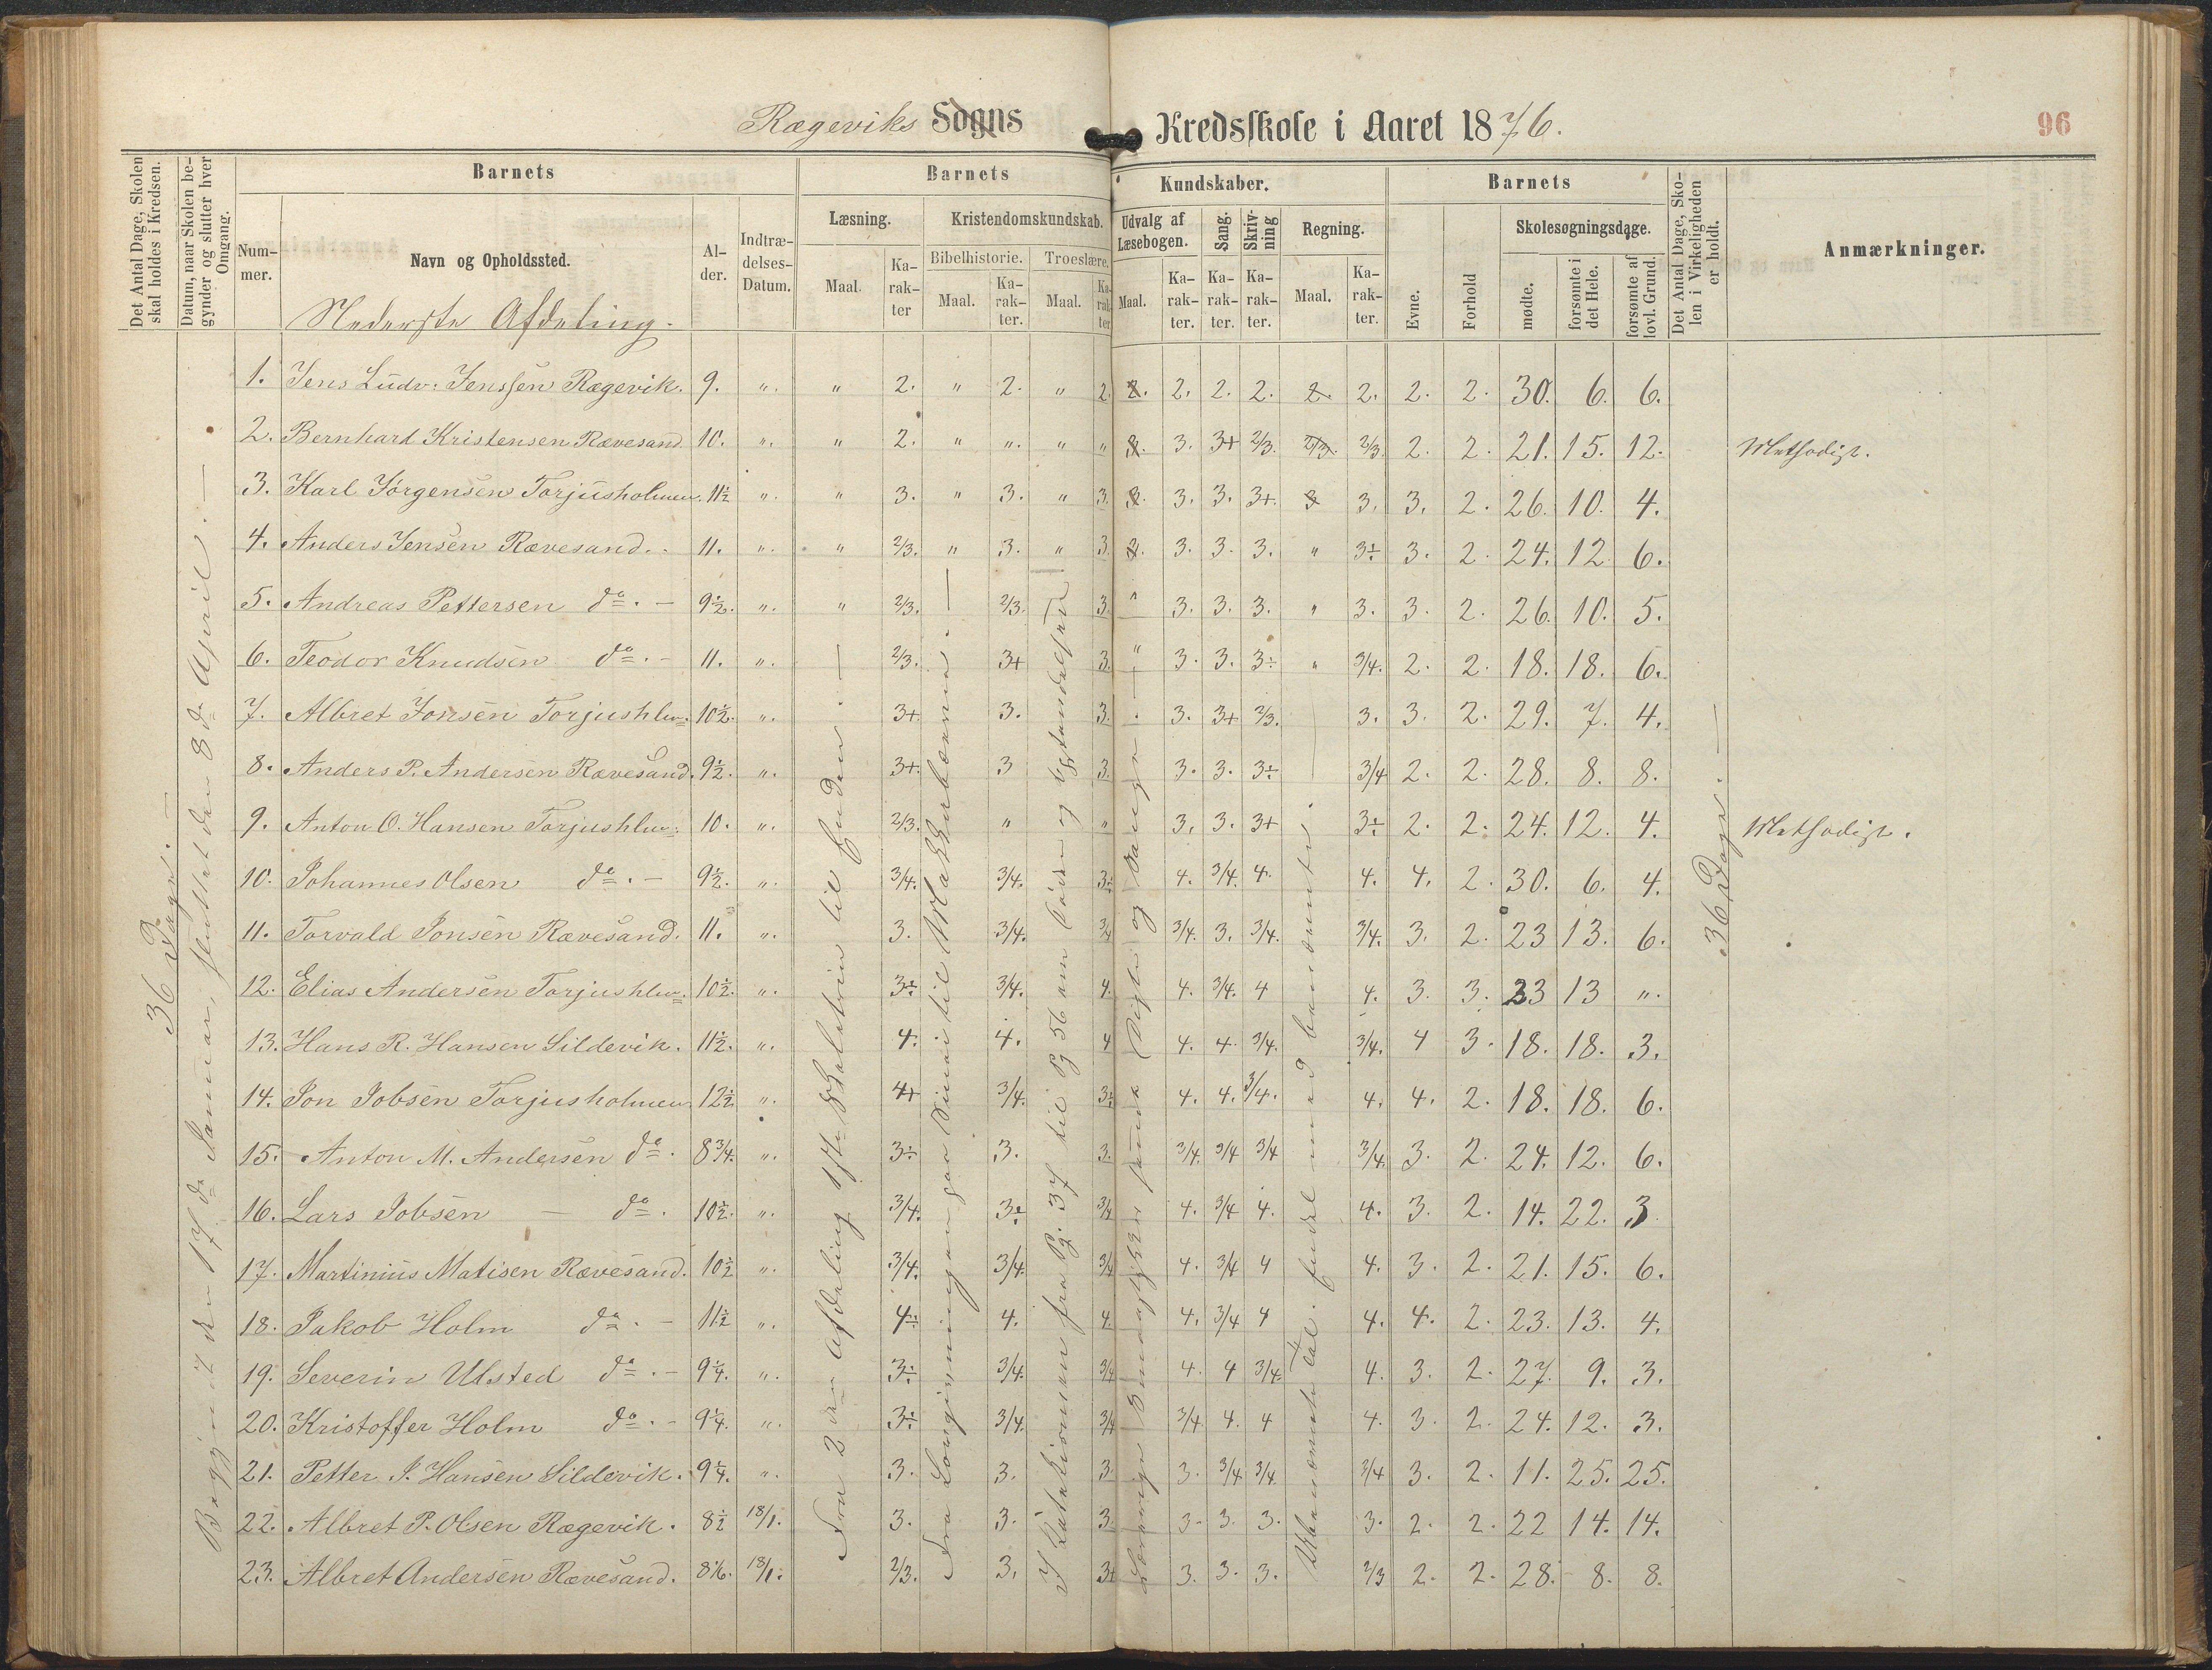 Rægeviks Sogns Kredsskole i Aaret 1876.
96
Det Antal Dage, Skolen skal holdes i Kredsen.
Datum, naar Skolen begynder og slutter hver Omgang.
Barnets
Nummer.
Navn og Opholdssted.
Alder.
Indtrædelses-Datum.
Barnets Kundskaber.
Læsning.
Maal.
Karakter
Kristendomskundskab.
Bibelhistorie.
Maal.
Karakter.
Troeslære.
Maal.
Karakter
Udvalg af Læsebogen.
Maal.
Karakter.
Sang.
Karakter.
Skrivning
Karakter.
Regning.
Maal.
Karakter.
Barnets
Evne.
Forhold
Skolesøgningsdage.
mødte.
forsømte i det Hele.
forsømte af lovl. Grund.
Det Antal Dage, Skolen i Virkeligheden er holdt.
Anmærkninger.
Nederste Afdeling.
1. Jens Ludv. Jenssen Rægevik. 9. " " 2. " 2. " 2. 2. 2. 2. 2. 2. 2. 2. 2. 30. 6. 6.
2. Bernhard Kristensen Rævesand. 10. " " 2. " " " " 3. 3. 3+ 2/3. 2/3. 2/3. 2. 2. 21. 15. 12. Methodist.
3. Karl Jørgensen Torjusholmen. 11½ " " 3. " 3. " 3. 3. 3. 3. 3+. 3 3. 3. 2. 26. 10. 4.
4. Anders Jensen Rævesand. 11. " " 2/3. " 3. " 3. 2. 3. 3. 3. " 3÷ 3. 2. 24. 12. 6.
5. Andreas Pettersen do. - 9½. " " 2/3. 2/3. 3. " 3. 3. 3. " 3. 3. 2. 26. 10. 5.
6. Teodor Knudsen do. - 11. " 2/3. 3+ 3. " 3. 3. 3÷ " 3/4. 2. 2. 18. 18. 6.
7. Albret Jonsen Torjushlm. 10½. " 3+. 3. 3. 3. 3+ 2/3. 3. 3. 2. 29. 7. 4.
8. Anders P. Andersen Rævesand. 9½. " 3+. 3 3. 3. 3. 3÷ 3/4 2. 2. 28. 8. 8.
9. Anton O. Hansen Torjushlm. 10. " 2/3. " " 3. 3. 3+ 3÷ 2. 2. 24. 12. 4. Methodist.
10. Johannes Olsen do. - 9½. " 3/4. 3/4. 3÷ 4. 3/4. 4. 4. 4. 2. 30. 6. 4.
11. Torvald Jonsen Rævesand. 11. " 3. 3/4. 3/4 3/4. 3. 3/4. 3/4. 3. 2. 23 13. 6.
12. Elias Andersen Torjushlm. 10½. " 3÷ 3/4. 4. 4. 3/4. 4 4. 3. 3. 23 13 "
13. Hans R. Hansen Sildevik. 11½. " 4. 4. 4 4. 4. 3/4. 3/4. 4 3. 18. 18. 3.
14. Jon Jobsen Torjusholmen 12½ " 4+ 3/4. 3÷ 4. 4. 3/4. 4. 4. 2. 18. 18. 6.
15. Anton M. Andersen do. 8¾. " 3÷ 3. 3. 3/4. 3/4 3/4 3/4. 3. 2. 24. 12. 6.
16. Lars Jobsen - do. 10½. " 3/4. 3÷ 3/4 4. 3/4 4. 4. 3. 2. 14. 22. 3.
17. Martinius Matisen Rævesand. 10½ " 3/4. 3/4. 3/4 4. 3/4 4 4. 3. 2. 21. 15. 6.
18. Jakob Holm do. - 11½ " 4÷ 4. 4. 4. 3/4 4 4. 4. 2. 23. 13. 4.
19. Severin Ulsted do. - 9¼. " 3÷ 3/4. 3/4 4. 4 3/4. 4. 3. 2. 27. 9. 3.
20. Kristoffer Holm do. - 9¼. " 3÷ 3/4. 3/4 3/4 4. 4 4. 3. 2. 24. 12. 3.
21. Petter J. Hansen Sildevik. 9¼. " 3. 3. 3. 3. 3/4 3/4 3/4 3. 2. 11. 25. 25.
22. Albret P. Olsen Rægevik. 8½ 18/1. 3. 3. 3. 3. 3. 3. 3. 2. 2. 22 14. 14.
23. Albret Andersen Rævesand. 8 1/6. 18/1. 2/3. 3. 3+ 3. 3. 3. 2/3 2. 2. 28. 8. 8.
36 Dage.
Begyndt den 17de Januar, sluttet den 8de April.
Fra 2den Afdeling 1ste til Enden.
Fra Lovgivningen paa Sinai til Makkabæerne.
I Katekismen fra Pg. 37 til Pg 56
og Sange
Ubenævnte Tal. med benævnte.
36 Dage.